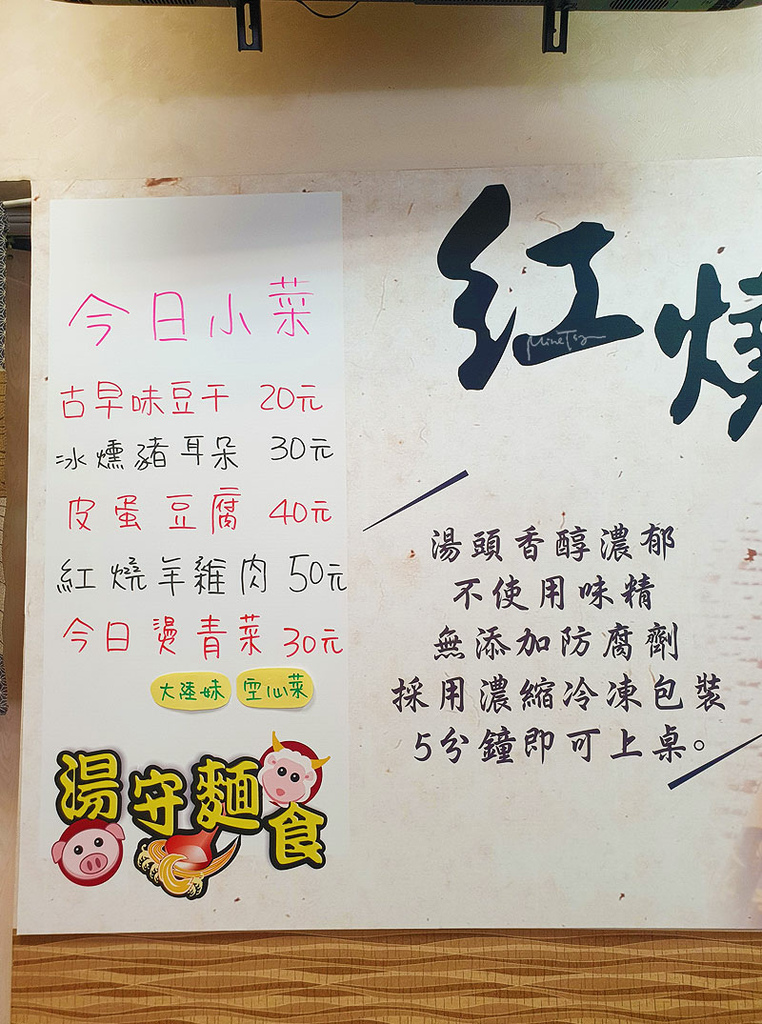 今日小菜
古早味豆干 20元
冰燻豬耳朵 30元
皮蛋豆腐 40元
紅燒羊雜肉 50元
今日燙青菜 30元
大陸妹 空心菜
湯守麵食
紅燒
湯頭香醇濃郁
不使用味精
無添加防腐劑
採用濃縮冷凍包裝
5分鐘即可上桌。